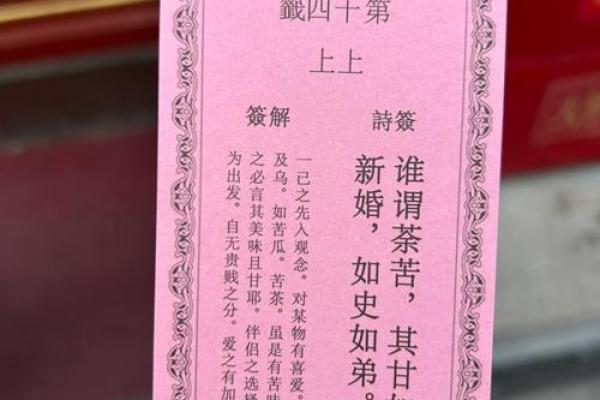 第十四籤
上上
簽詩
谁谓荼苦，其甘
新婚，如史如弟。
解簽
一己之先入观念。对某物有喜爱。
及乌。如苦瓜。苦茶。虽是有苦味
之必言其美味且甘耶。伴侣之选择
为出发。自无贵贱之分。爱之有加